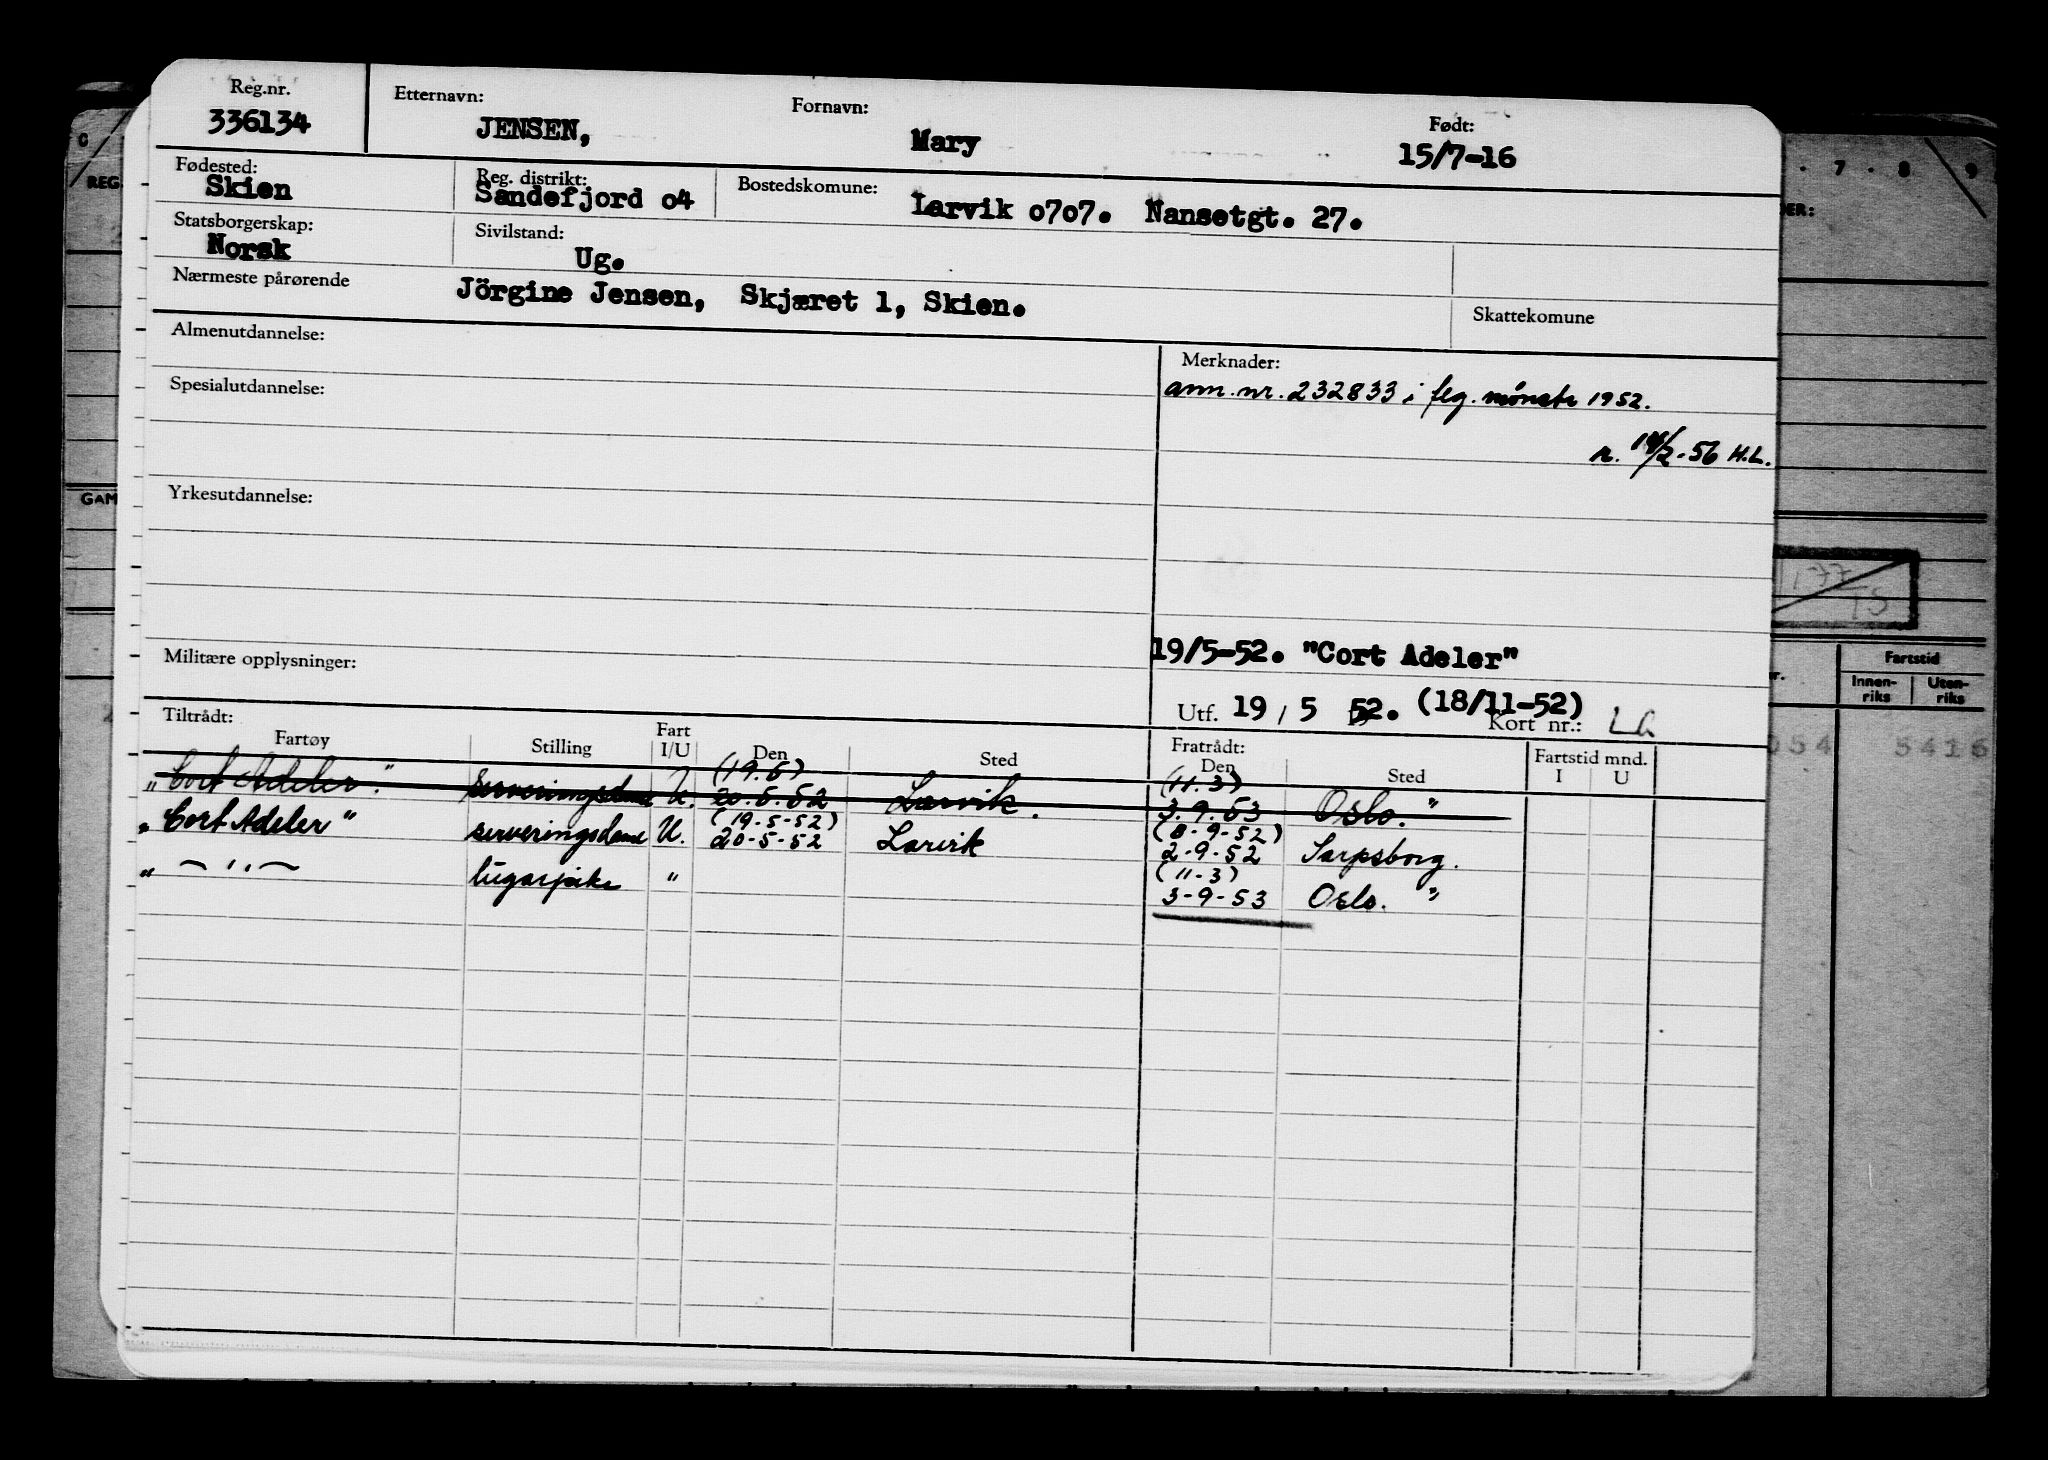 Reg.nr. Etternavn: Fornavn: Født:
336134 JENSEN, Mary 15/7-16
Fødested: Reg. distrikt: Bostedskomune:
Skien Sandefjord o4 Larvik o7o7. Nansetgt. 27.
Statsborgerskap: Sivilstand:
Norsk Ug.
Nærmeste pårørende Jörgine Jensen, Skjæret 1, Skien. Skattekomune
Almenutdannelse: Merknader:
ann. nr. 232833 i feg. mønstr 1952.
Spesialutdannelse:
r. /2-56 H.L.
Yrkesutdannelse:
19/5-52. "Cort Adeler"
Militære opplysninger:
Utf. 19 / 5 52. (18/11-52)
Kort nr.:
Tiltrådt: Fratrådt:
Fartøy Stilling Fart I/U Den Sted Den Sted Fartstid mnd. I U
(19.6) (11.3)
"Cort Adeler." serveringsdame U. 20.5.52 Larvik. 3.9.53 Oslo."
(19-5-52) (8-9-52)
"Cort Adeler" serveringsdame U. 20-5-52 Larvik 2-9-52 Sarpsborg.
(11-3)
" — " — lugarpike " 3-9-53 Oslo. "
REG.
GAM
7 . 8 9
DER:
Fartstid
Innen-riks Uten-riks
054 5416